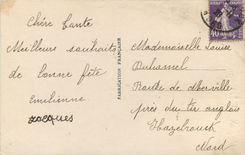 Chère Tante
Meilleurs souhaits
de bonne fête
Emilienne
Jacques
FABRICATION FRANÇAISE
Mademoiselle Louise
Duhamel
Route de Merville
près du tir anglais
Hazebrouck
Nord
40